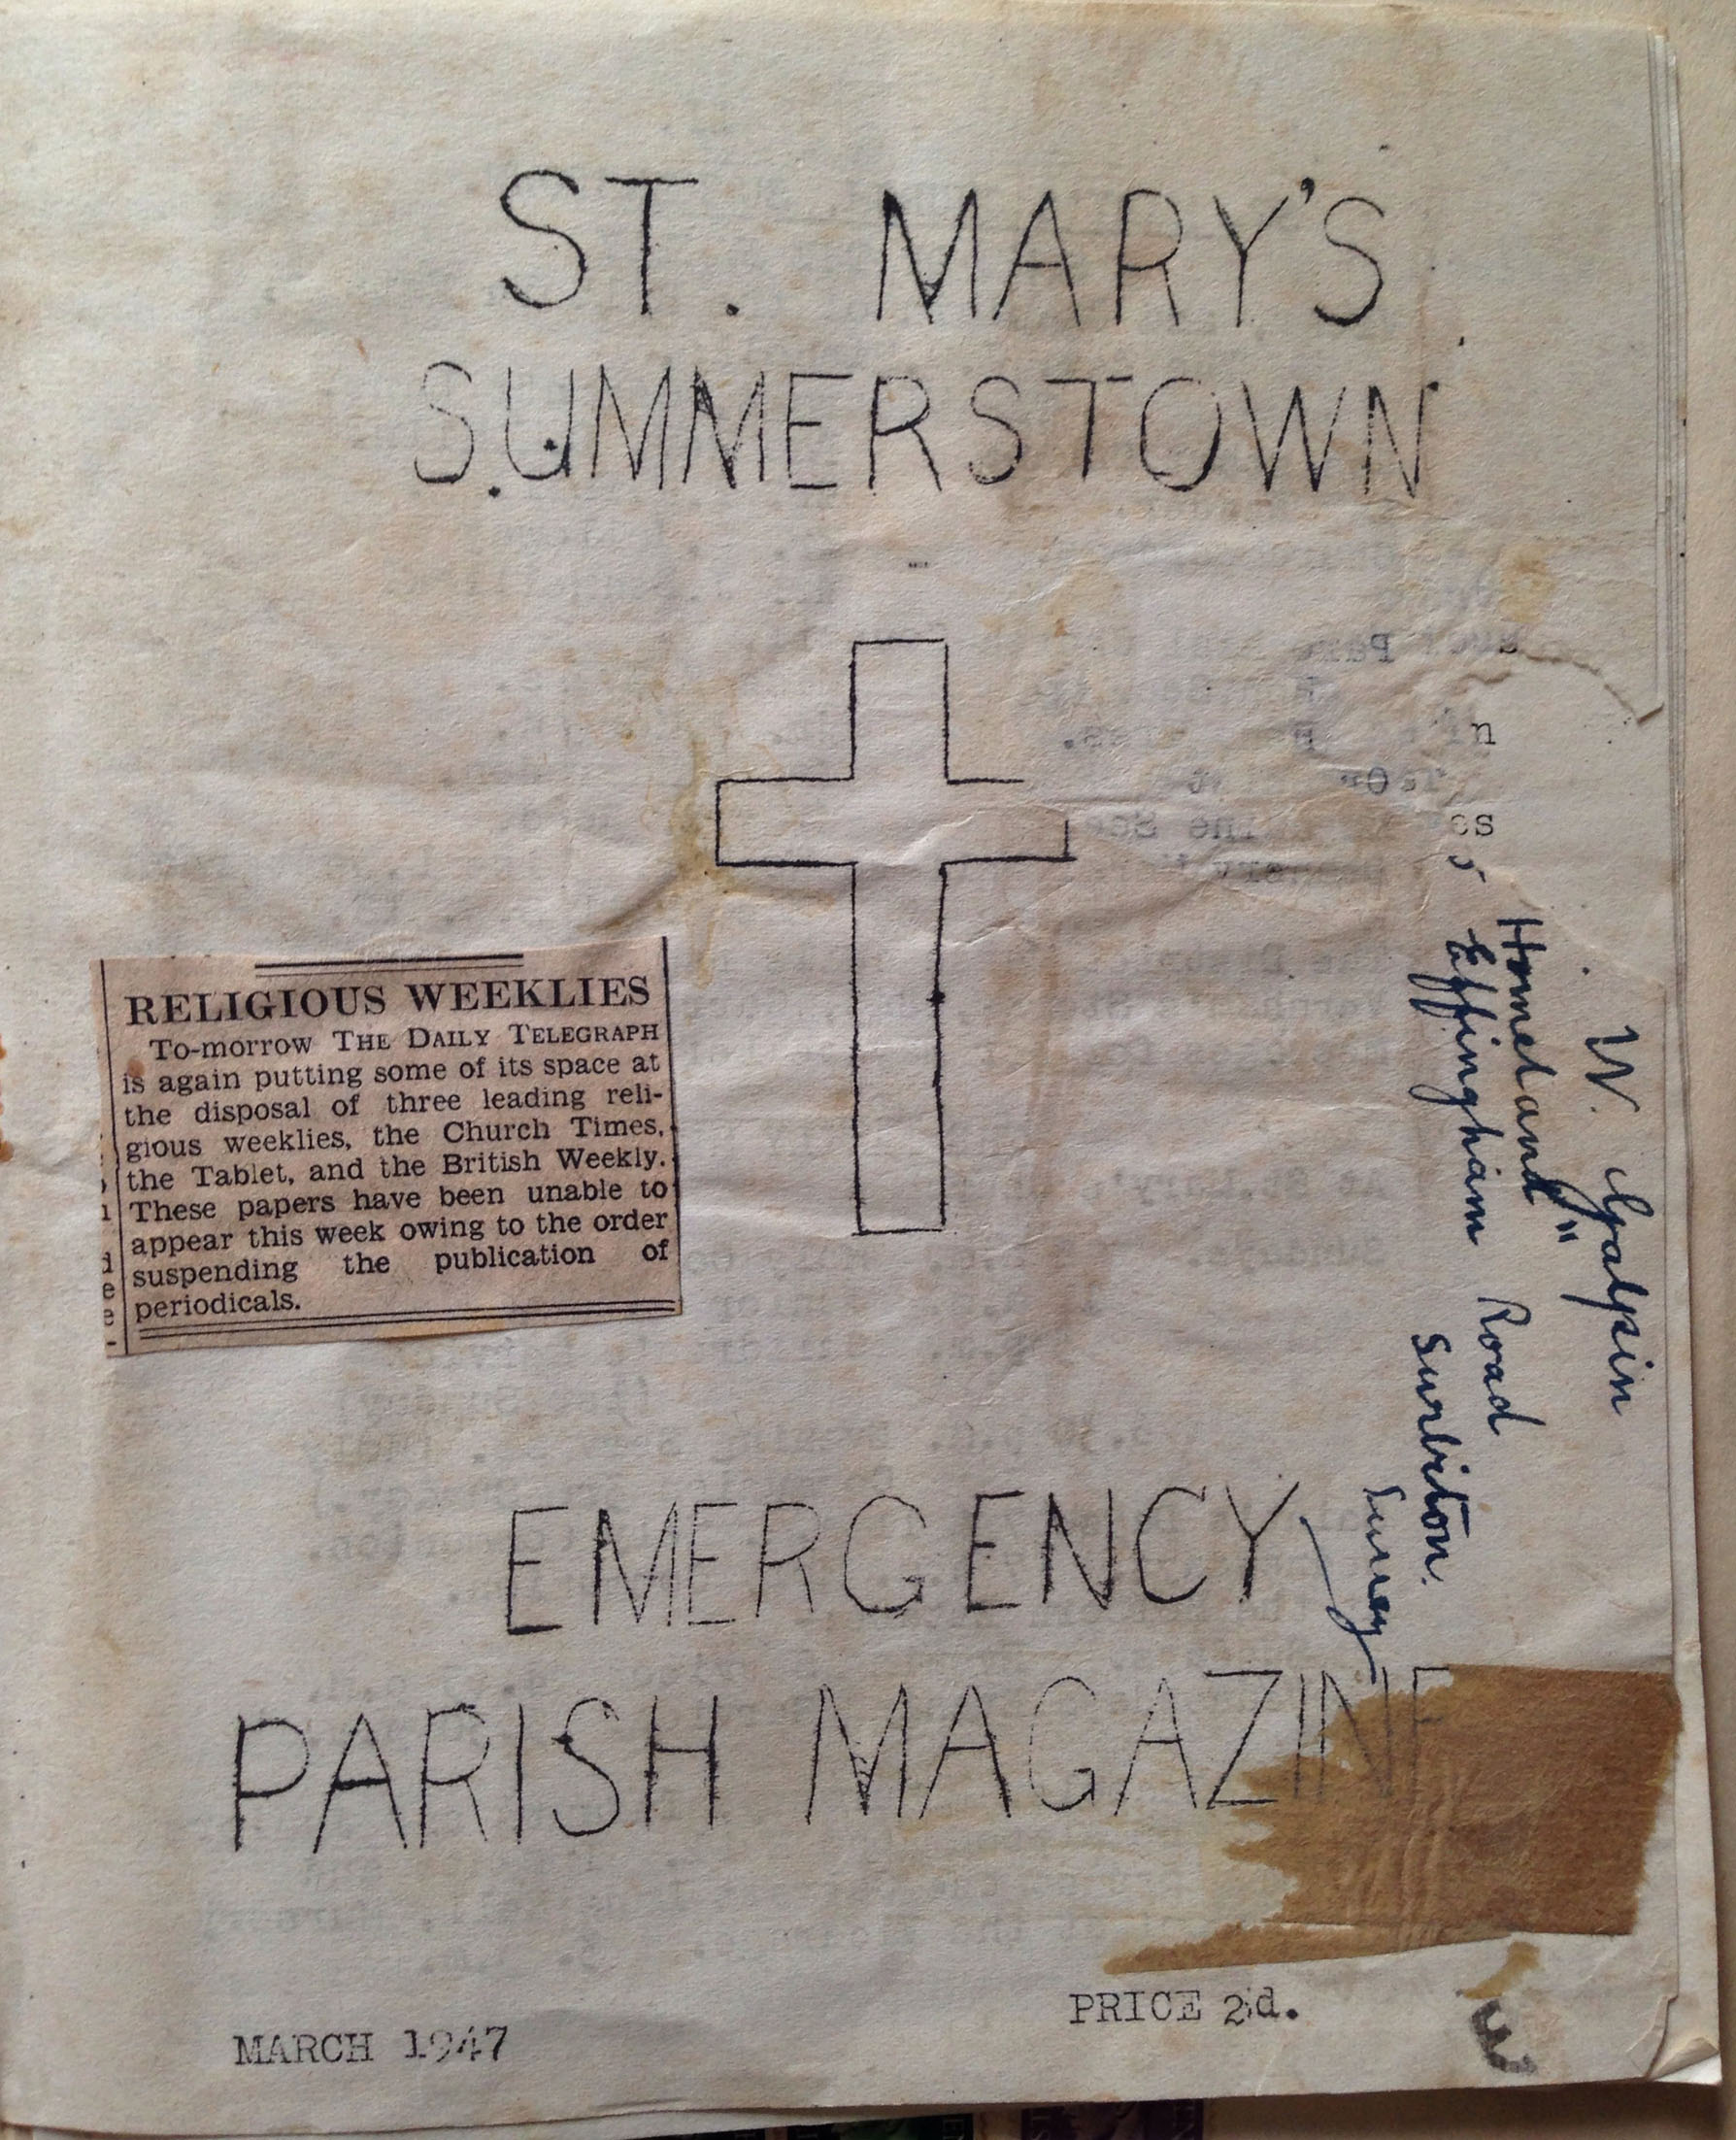 ST. MARY'S
SUMMERSTOWN
RELIGIOUS WEEKLIES
To-morrow THE DAILY TELEGRAPH
is again putting some of its space at
the disposal of three leading reli-
gious weeklies, the Church Times,
the Tablet, and the British Weekly.
These papers have been unable to
appear this week owing to the order
suspending the publication of
periodicals.
W. Galpin
Homeland"
Effingham Road
Surbiton.
Surrey
EMERGENCY
PARISH MAGAZINE
PRICE 2d.
MARCH 1947